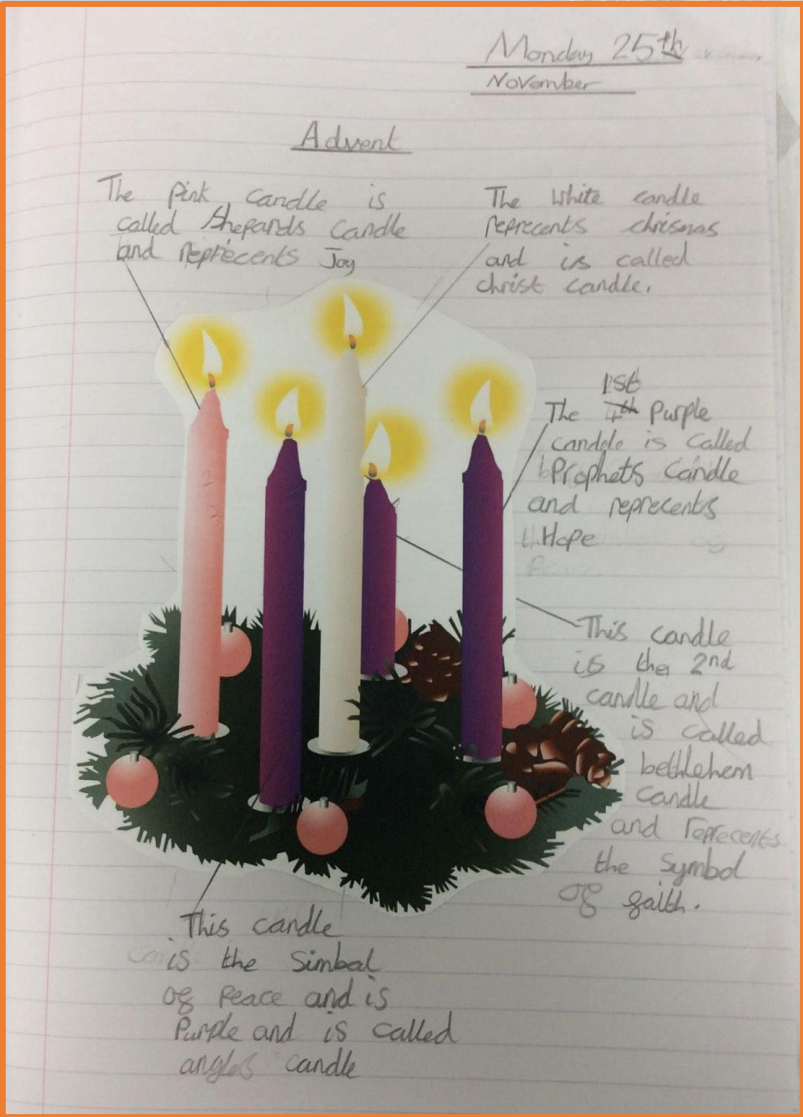 Monday 25th
November
Advent
The pink candle is
called Shepards Candle
and reprecents Joy
The white candle
reprecents chrismas
and is called
christ candle.
1st
The 4th Purple
candle is called
Prophets Candle
and reprecents
Hope
This candle
is the 2nd
candle and
is called
bethlehem
candle
and reprecents
the symbol
of faith.
This candle
is the Simbal
of Peace and is
Purple and is called
angles candle